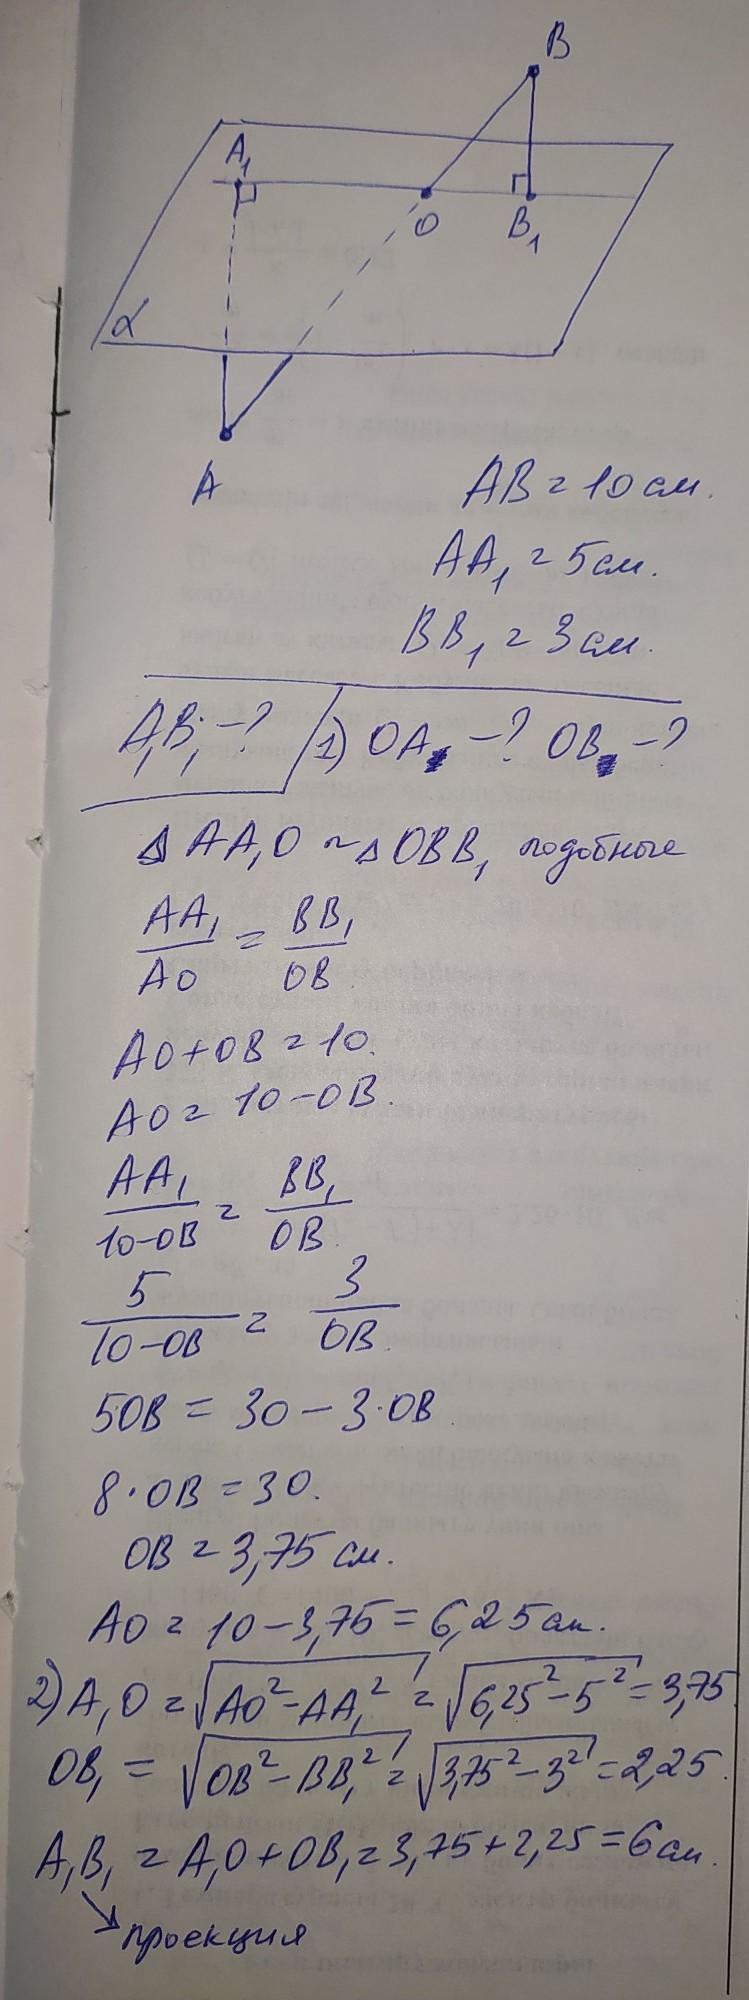 B
A₁
O
B₁
α
A
AB = 10 см.
AA₁ = 5 см.
BB₁ = 3 см.
A₁B₁ - ? 1) OA - ? OB - ?
Δ AA₁O ~ Δ OBB₁ подобные
AA₁/AO = BB₁/OB
AO + OB = 10.
AO = 10 - OB.
AA₁/10-OB = BB₁/OB
5/10-OB = 3/OB.
5OB = 30 - 3·OB
8·OB = 30.
OB = 3,75 см.
AO = 10 - 3,75 = 6,25 см.
2) A₁O = √AO² - AA₁² = √6,25² - 5² = 3,75
OB₁ = √OB² - BB₁² = √3,75² - 3² = 2,25.
A₁B₁ = A₁O + OB₁ = 3,75 + 2,25 = 6 см.
проекция